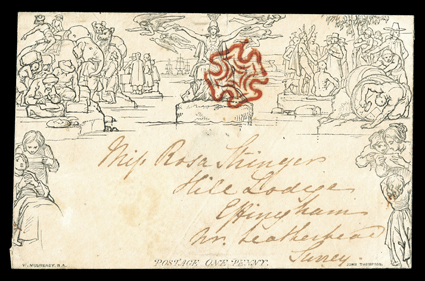 Miss Rosa Stringer
Hill Lodge
Effingham
Nr. Leatherhead
Surrey.
POSTAGE ONE PENNY.
W. MULREADY, R.A.
JOHN THOMPSON.